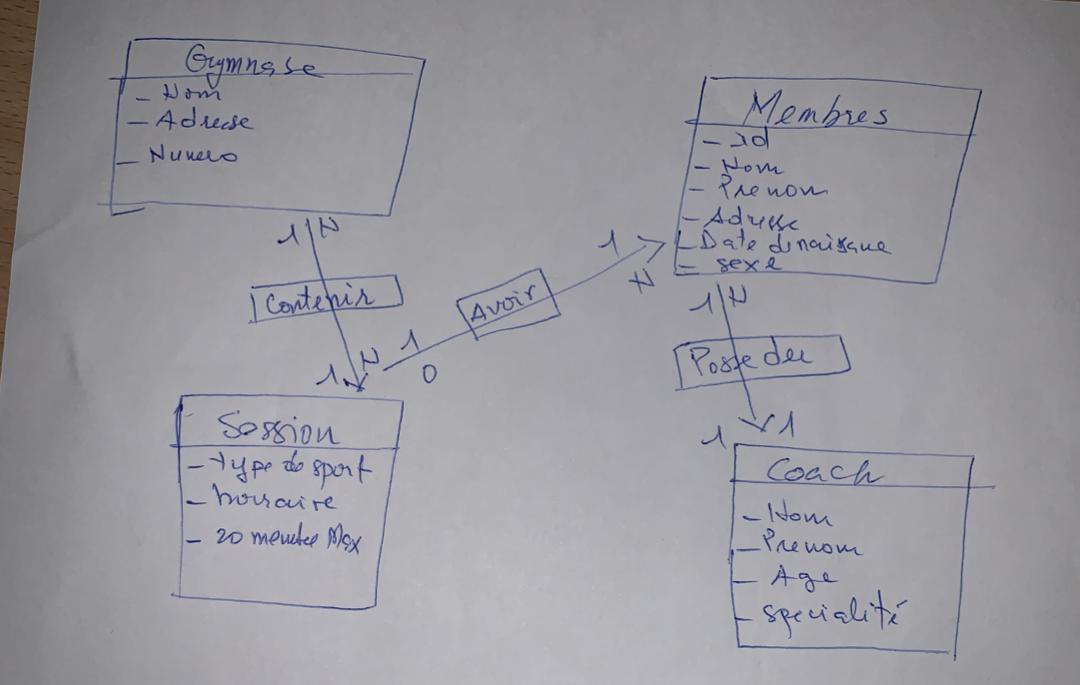 Gymnase
- Nom
- Adresse
- Numero
1 N
Contenir
1 N
Session
- type de sport
- horraire
- 20 membre Max
1 0
Avoir
1 N
Membres
- Id
- Nom
- Prenom
- Adresse
- Date de naissance
- sexe
1 N
Posseder
1 1
Coach
- Nom
- Prenom
- Age
- specialité